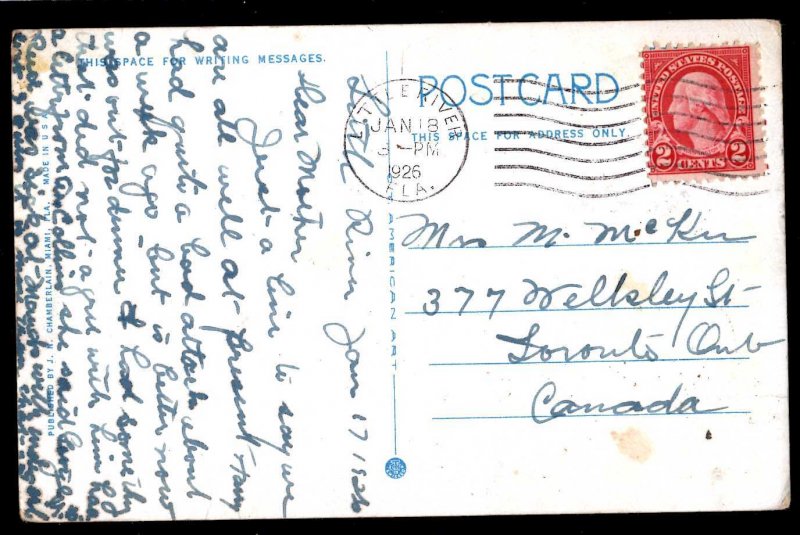 THIS SPACE FOR WRITING MESSAGES.
POST CARD
THIS SPACE FOR ADDRESS ONLY.
LITTLE RIVER
JAN 18
3-PM
1926
FLA.
UNITED STATES POSTAGE
2 CENTS 2
AMERICAN ART
PUBLISHED BY J. N. CHAMBERLAIN, MIAMI, FLA. MADE IN U.S.A.
Little River Jan 17 1926
Dear Mother
Just a line to say we
are all well at present Harry
had quite a bad attack about
a week ago - but is better now
was out for dinner & had something
that did not agree with him
a letter from she said
Mrs M. McKee
377 Wellesley St
Toronto Ont
Canada